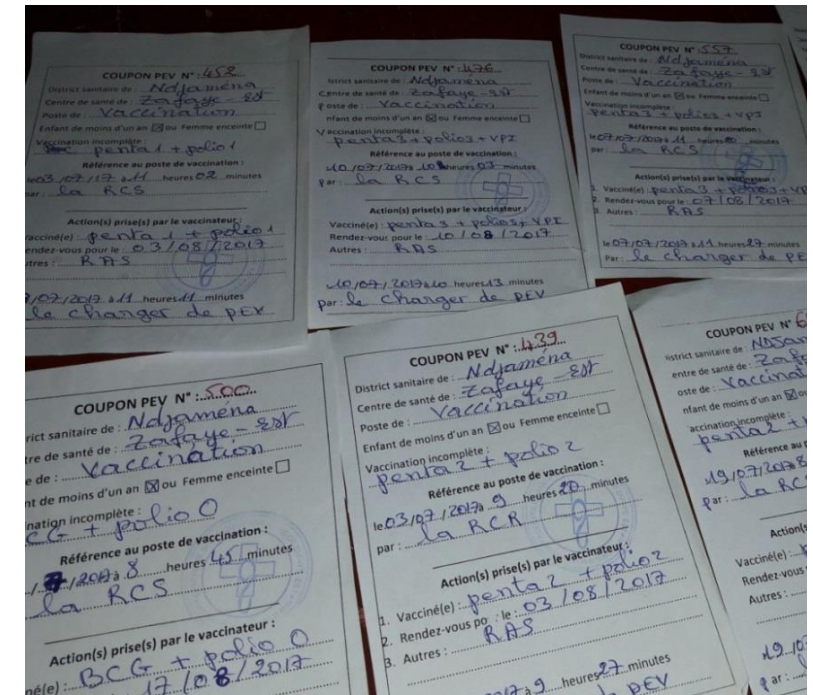 COUPON PEV N° : 452
District sanitaire de : Ndjamena
Centre de santé de : Zafaye - Est
Poste de : Vaccination
Enfant de moins d'un an ☒ ou Femme enceinte ☐
Vaccination incomplète :
penta 1 + polio 1
Référence au poste de vaccination :
le 03 /07 /17 à 11 heures 02 minutes
par : la RCS
Action(s) prise(s) par le vaccinateur :
Vacciné(e) : penta 1 + polio 1
endez-vous pour le : 03 / 08 / 2017
tres : RAS
/07/2017 à 11 heures 11 minutes
le charger de PEV
COUPON PEV N° : 476
istrict sanitaire de : Ndjamena
Centre de santé de : Zafaye - Est
Poste de : Vaccination
nfant de moins d'un an ☒ ou Femme enceinte ☐
Vaccination incomplète :
penta 3 + polio 3 + VPI
Référence au poste de vaccination :
10 /07/2017 à 10 heures 03 minutes
par : la RCS
Action(s) prise(s) par le vaccinateur :
Vacciné(e) : penta 3 + polio 3 + VPI
Rendez-vous pour le : 10 / 08 / 2017
Autres : RAS
10/07/2017 à 10 heures 13 minutes
par : le charger de PEV
COUPON PEV N° : 557
District sanitaire de : Ndjamena
Centre de santé de : Zafaye - Est
Poste de : Vaccination
Enfant de moins d'un an ☒ ou Femme enceinte ☐
Vaccination incomplète :
penta 3 + polio 3 + VPI
Référence au poste de vaccination :
le 07/07/2017 à 11 heures minutes
par : la RCS
Action(s) prise(s) par le vaccinateur :
1. Vacciné(e) : penta 3 + polio 3 + VP
2. Rendez-vous pour le : 07 / 08 / 2017
3. Autres : RAS
le 07/07/2017 à 11 heures 27 minutes
Par : le charger de PE
COUPON PEV N° : 500
rict sanitaire de : Ndjamena
tre de santé de : Zafaye - Est
e de : Vaccination
nt de moins d'un an ☒ ou Femme enceinte ☐
nation incomplète :
CG + polio 0
Référence au poste de vaccination :
/2017 à 8 heures 45 minutes
la RCS
Action(s) prise(s) par le vaccinateur :
né(e) : BCG + polio 0
17 / 08 / 2017
COUPON PEV N° : 439
District sanitaire de : Ndjaména
Centre de santé de : Zafaye - Est
Poste de : Vaccination
Enfant de moins d'un an ☒ ou Femme enceinte ☐
Vaccination incomplète :
penta 2 + polio 2
Référence au poste de vaccination :
le 03 /07 / 2017 à 9 heures 20 minutes
par : la RCR
Action(s) prise(s) par le vaccinateur :
1. Vacciné(e) : penta 2 + polio 2
2. Rendez-vous po : le : 03 / 08 / 2017
3. Autres : RAS
à 9 heures 27 minutes
PEV
COUPON PEV N° 6
istrict sanitaire de : NDJam
entre de santé de : Zafa
oste de : Vaccinat
nfant de moins d'un an ☒ ou
accination incomplète :
penta 2 +
Référence au p
19/07/2017 à 8
par : la RC
Action(s
Vacciné(e) :
Rendez-vous
Autres :
19/07
par :